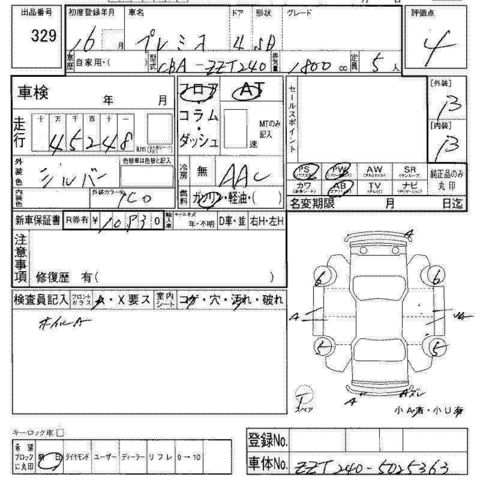 出品番号 初度登録年月 車名 ドア 形状 グレード 評価点
329 16 月 プレミオ 4 SD 4
車歴 自家用・( ) 型式 CBA-ZZT240 排気量 1800 cc 定員 5 人
車検 年 月
フロア・コラム・ダッシュ AT
MTのみ記入 速
セールスポイント
[外装] B
[内装] B
走行 十 万 千 百 十 一
45248 km
外装色 シルバー 色替車は色替と記入
内装色 外装カラーNo. 1C0
冷房 無 AAC
燃料 ガソリン・軽油・( )
PS PW AW SR 純正品のみ丸印
カワ AB TV ナビ
名変期限 月 日迄
新車保証書 R券有 ¥ 10,830 輸入車 年・不明 D車・並 右H・左H
注意事項
修復歴 有( )
検査員記入 フロントガラス A・X要ス 室内シート コゲ・穴・汚れ・破れ
ホイルA
A
6 6
A
5 5
スペア
A
小A有・小U有
キーロック車□
希望ブロックに丸印 ダイヤモンド ユーザー ディーラー リフレ 0→10
登録No.
車体No. ZZT240-5025363